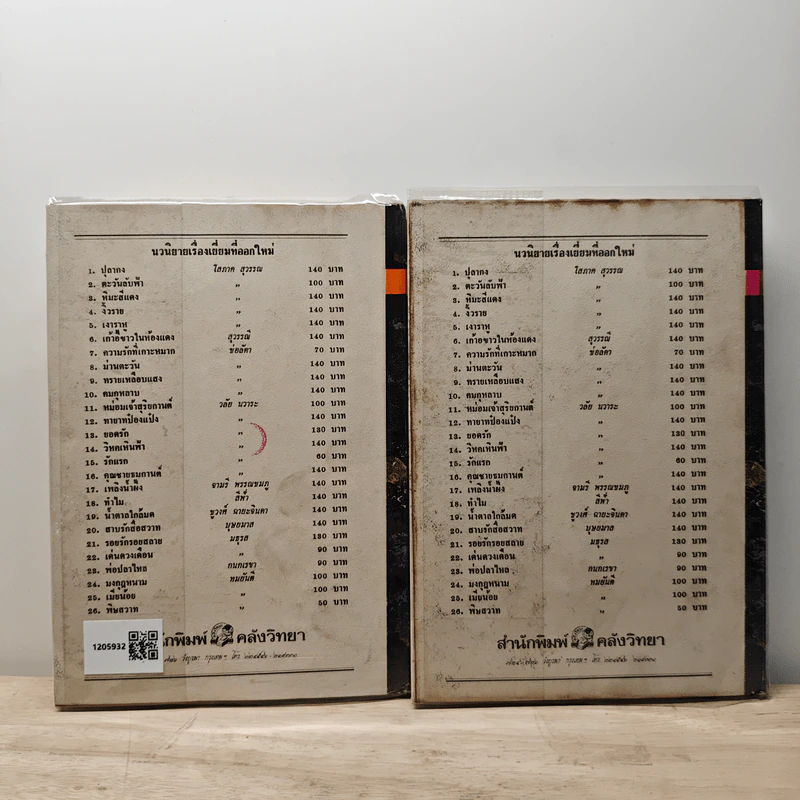 นวนิยายเรื่องเยี่ยมที่ออกใหม่
1. ปุลากง โสภาค สุวรรณ 140 บาท
2. ตะวันลับฟ้า ,, 100 บาท
3. พิมะสีแดง ,, 140 บาท
4. งิ้วราย ,, 140 บาท
5. เงาราหู ,, 140 บาท
6. เก้าอี้ขาวในห้องแดง สุวรรณี 140 บาท
7. ความรักที่เกาะหมาก ช่อลัดา 70 บาท
8. ม่านตะวัน ,, 140 บาท
9. ทรายเหลือบแสง ,, 140 บาท
10. คมกุหลาบ ,, 140 บาท
11. หม่อมเจ้าสุริยกานต์ วลัย นวาระ 100 บาท
12. ทายาทป่องแป๋ง ,, 140 บาท
13. ยอดรัก ,, 130 บาท
14. วิหคเหินฟ้า ,, 140 บาท
15. รักแรก ,, 60 บาท
16. คุณชายธมกานต์ ,, 140 บาท
17. เพลิงน้ำผึ้ง จามรี พรรณชมภู 140 บาท
18. ทำไม สีฟ้า 140 บาท
19. น้ำตาลใกล้มด ชูวงศ์ ฉายะจินดา 140 บาท
20. สาบรักสื่อสวาท บุษยมาส 140 บาท
21. รอยรักรอยสลาย มธุรส 130 บาท
22. เด่นดวงเดือน ,, 90 บาท
23. พ่อปลาไหล กนกเรขา 90 บาท
24. มงกุฎหนาม ทมยันตี 100 บาท
25. เมียน้อย ,, 100 บาท
26. พิษสวาท ,, 50 บาท
นักพิมพ์ คลังวิทยา
1205932
นวนิยายเรื่องเยี่ยมที่ออกใหม่
1. ปุลากง โสภาค สุวรรณ 140 บาท
2. ตะวันลับฟ้า ,, 100 บาท
3. พิมะสีแดง ,, 140 บาท
4. งิ้วราย ,, 140 บาท
5. เงาราหู ,, 140 บาท
6. เก้าอี้ขาวในห้องแดง สุวรรณี 140 บาท
7. ความรักที่เกาะหมาก ช่อลัดา 70 บาท
8. ม่านตะวัน ,, 140 บาท
9. ทรายเหลือบแสง ,, 140 บาท
10. คมกุหลาบ ,, 140 บาท
11. หม่อมเจ้าสุริยกานต์ วลัย นวาระ 100 บาท
12. ทายาทป่องแป๋ง ,, 140 บาท
13. ยอดรัก ,, 130 บาท
14. วิหคเหินฟ้า ,, 140 บาท
15. รักแรก ,, 60 บาท
16. คุณชายธมกานต์ ,, 140 บาท
17. เพลิงน้ำผึ้ง จามรี พรรณชมภู 140 บาท
18. ทำไม สีฟ้า 140 บาท
19. น้ำตาลใกล้มด ชูวงศ์ ฉายะจินดา 140 บาท
20. สาบรักสื่อสวาท บุษยมาส 140 บาท
21. รอยรักรอยสลาย มธุรส 130 บาท
22. เด่นดวงเดือน ,, 90 บาท
23. พ่อปลาไหล กนกเรขา 90 บาท
24. มงกุฎหนาม ทมยันตี 100 บาท
25. เมียน้อย ,, 100 บาท
26. พิษสวาท ,, 50 บาท
สำนักพิมพ์ คลังวิทยา